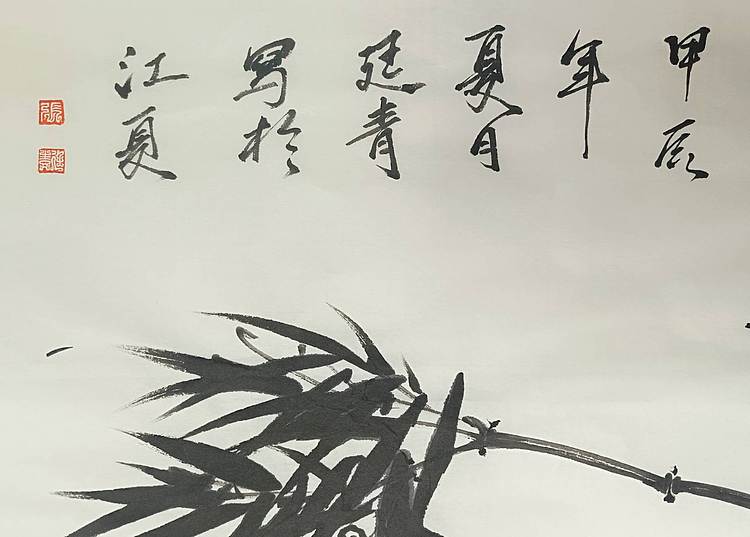 甲辰
年
夏月
廷青
写於
江夏
張